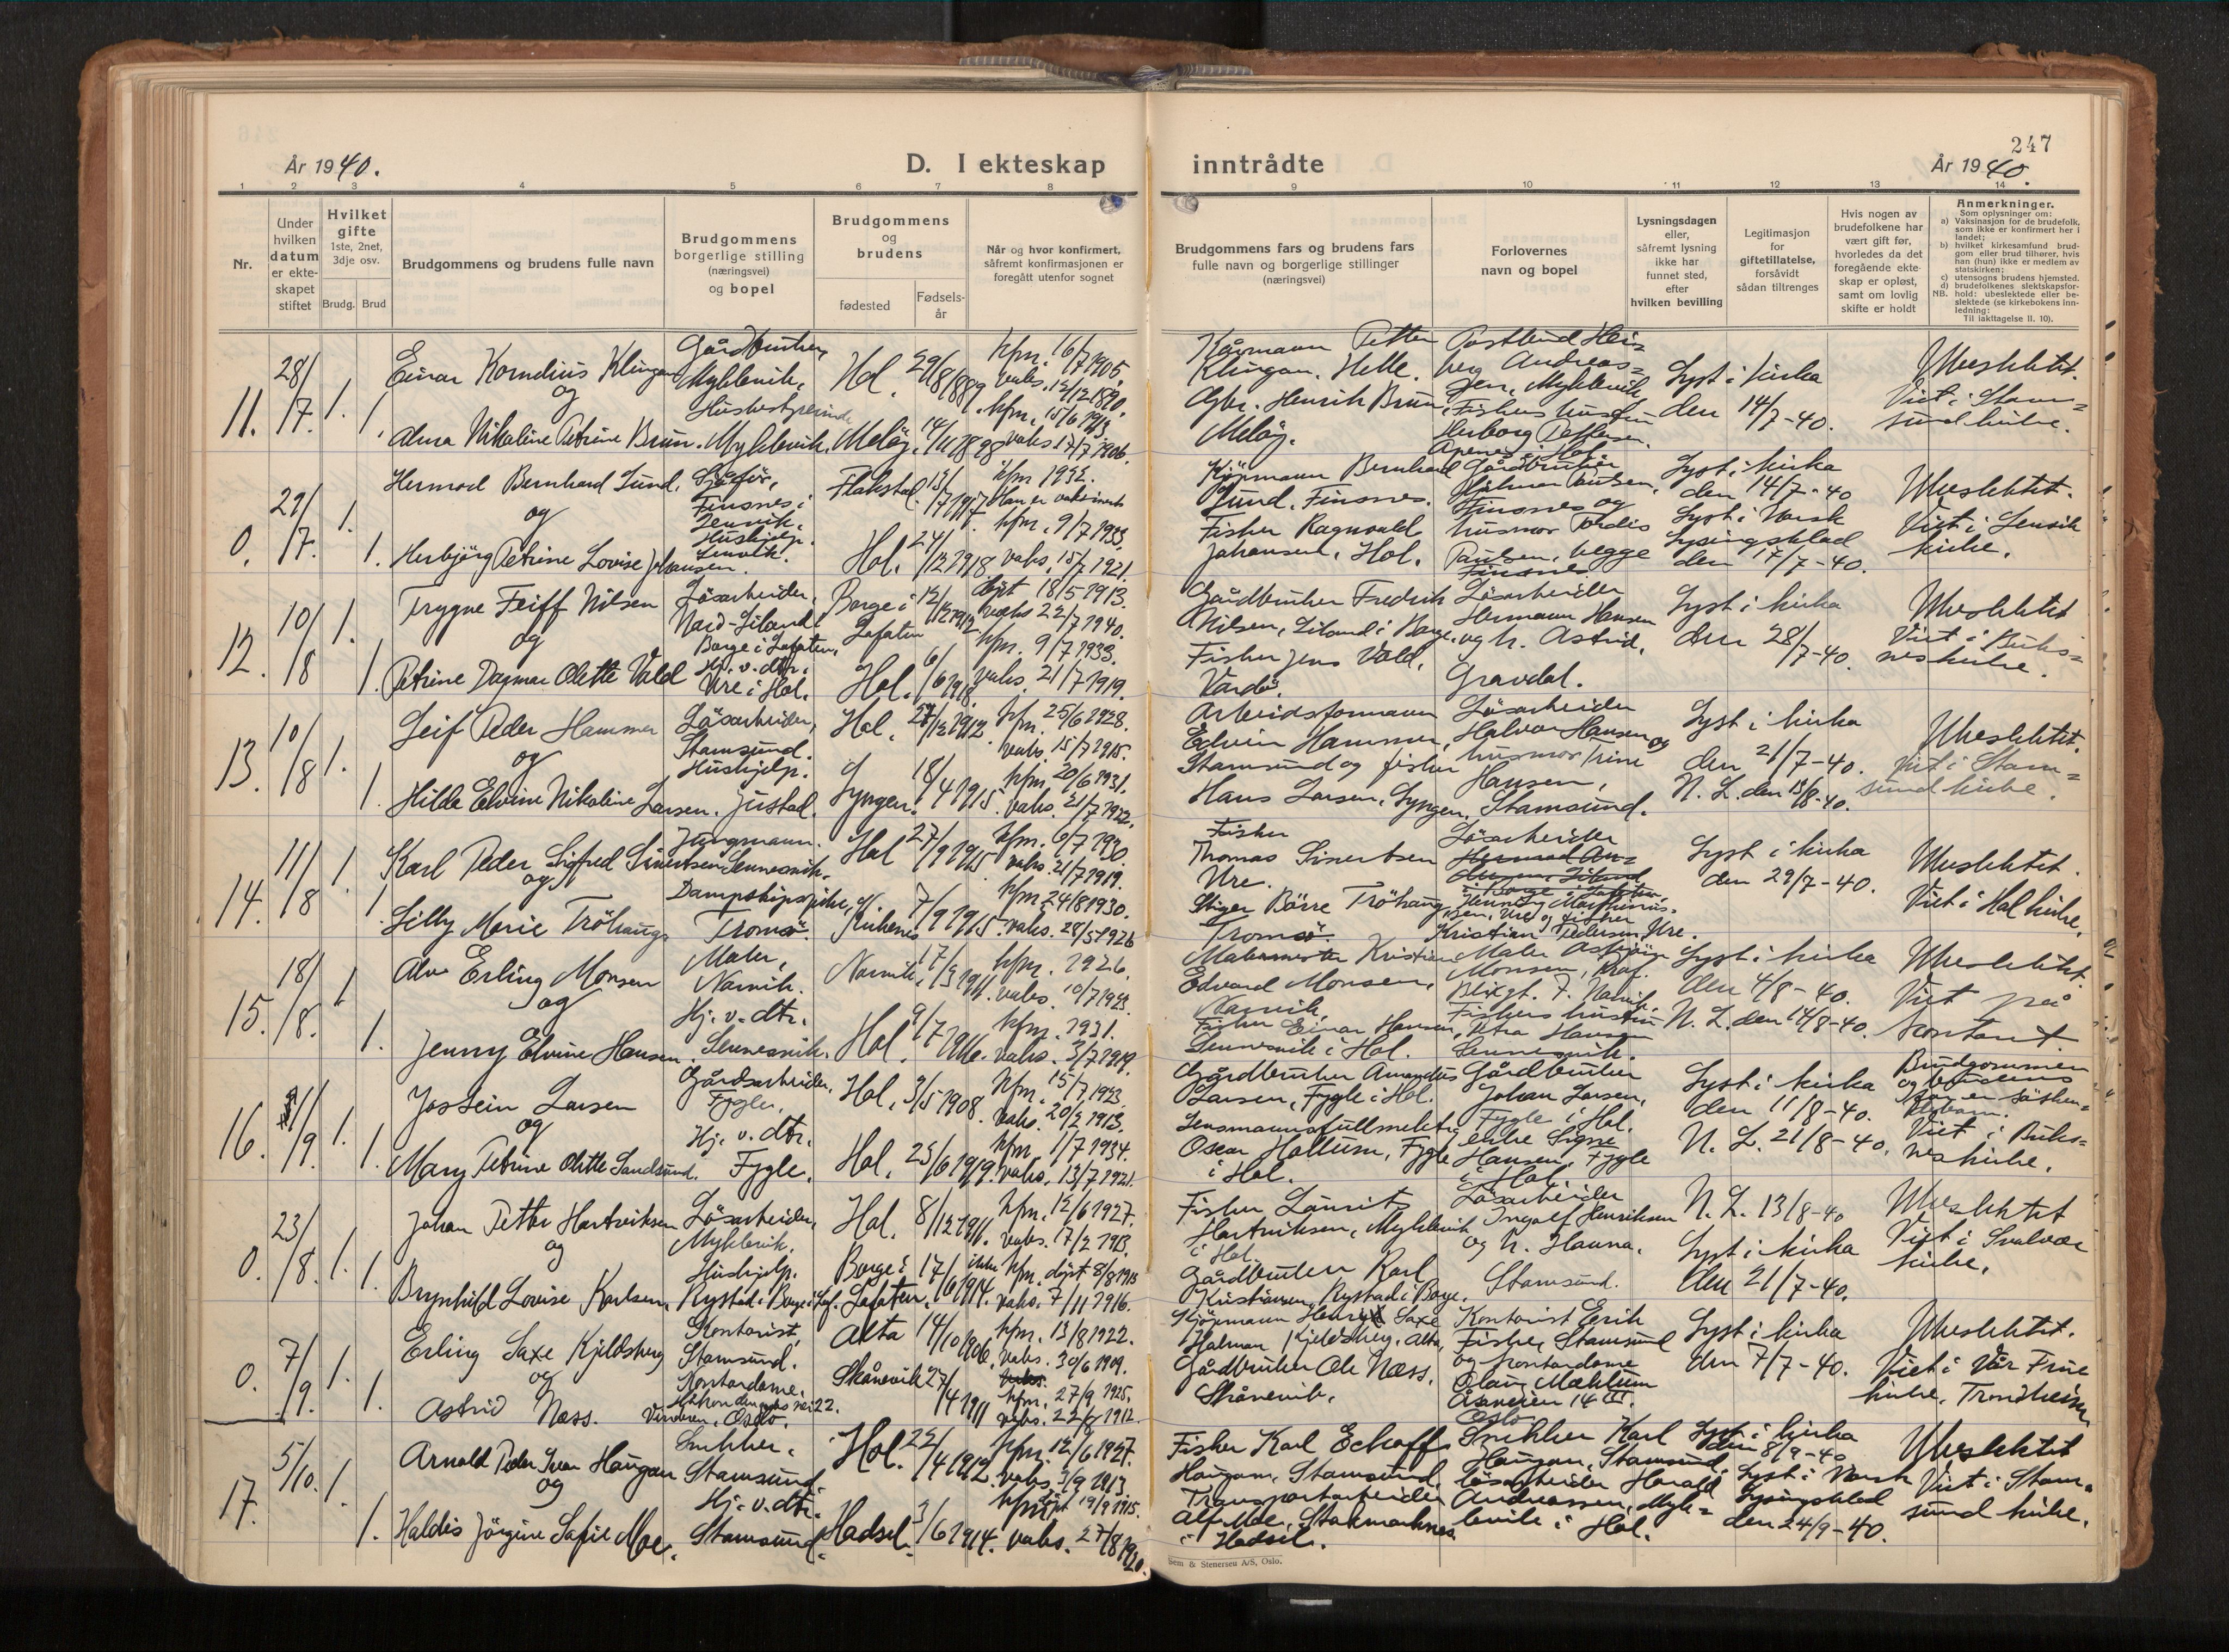 247
År 1940.
D. I ekteskap
inntrådte
År 1940.
1 2 3 4 5 6 7 8 9 10 11 12 13 14
Nr.
Under hvilken datum er ekteskapet stiftet
Hvilket gifte
1ste, 2net, 3dje osv.
Brudg. Brud
Brudgommens og brudens fulle navn
Brudgommens borgerlige stilling (næringsvei) og bopel
Brudgommens og brudens
fødested
Fødselsår
Når og hvor konfirmert, såfremt konfirmasjonen er foregått utenfor sognet
Brudgommens fars og brudens fars fulle navn og borgerlige stillinger (næringsvei)
Forlovernes navn og bopel
Lysningsdagen eller, såfremt lysning ikke har funnet sted, efter hvilken bevilling
Legitimasjon for giftetillatelse, forsåvidt sådan tiltrenges
Hvis nogen av brudefolkene har vært gift før, hvorledes da det foregående ekteskap er opløst, samt om lovlig skifte er holdt
Anmerkninger.
Som oplysninger om:
a) Vaksinasjon for de brudefolk, som ikke er konfirmert her i landet;
b) hvilket kirkesamfund brudgom eller brud tilhører, hvis han (hun) ikke er medlem av statskirken;
c) utensogns brudens hjemsted.
d) brudefolkenes slektskapsforhold: ubeslektede eller beslektede (se kirkebokens innledning:
NB.
Til iakttagelse II. 10).
11. 28/7. 1. 1.
Einar Kornelius Klingan
og
Alma Nikoline Petrine Brun.
Gårdbruker,
Myklevik.
Husbestyrerinde
Myklevik.
Hol. 29/8 1889
Meløy. 14/11 1898
kfm. 16/7 1905.
vaks. 12/12 1890.
kfm. 15/6 1913.
vaks 17/7 1906.
Petter
Klingan. Helle.
Gbr. Henrik Brun,
Meløy.
Andreas=
sen, Myklevik
Herborg Pettersen.
Lyst i kirka
den 14/7-40.
Ubeslektet.
Viet i Stam=
sund kirke.
0. 29/7. 1. 1.
Hermod Bernhard Lund.
og
Herbjörg Petrine Lovise Johansen.
Sjåför,
Finsnes i
Lenvik.
Hushjelp.
Lenvik.
Flakstad. 13/7 1917
Hol. 24/12 1918
kfm 1932.
Han er vaksinert
kfm. 9/7 1933.
vaks. 15/7 1921.
Kjöpmann Bernhard
Lund. Finsnes.
Fisker Ragnvald
Johansen. Hol.
Gårdbruker
Hilmar Paulsen,
Finsnes og
husmor Tordis
Paulsen, begge
Finsnes
Lyst i kirka
den 14/7-40
Lyst i Norsk
Lysingsblad
den 17/7-40.
Ubeslektet.
Viet i Lenvik
kirke.
12. 10/8 1. 1.
Trygve Feiff Nilsen
og
Petrine Dagmar Olette Vald
Lösarbeider,
Nord-Liland i
Borge i Lofoten,
Hj. v. dtr.
Ure i Hol.
Borge i
Lofoten 12/12 1912
Hol. 6/6 1918
döpt 18/5 1913.
vaks 22/7 1940.
kfm. 9/7 1933.
vaks. 21/7 1919.
Gårdbruker Fredrik
Nilsen, Liland i Borge.
Fisker Jens Vald,
Vardö.
Lösarbeider
Hermann Hansen
og h. Astrid,
Gravdal.
Lyst i kirka
den 28/7-40.
Ubeslektet
Viet i Buks=
nes kirke.
13. 10/8 1. 1.
Leif Peder Hammer
og
Hilda Elvine Nikoline Larsen.
Lösarbeider,
Stamsund.
Hushjelp.
Justad.
Hol. 27/12 1912
Lyngen. 18/4 1915
kfm. 25/6 1928.
vaks. 15/7 1915.
kfm. 20/6 1931.
vaks. 21/7 1922.
Arbeidsformann
Edvin Hammer,
Stamsund og fisker
Hans Larsen, Lyngen.
Lösarbeider
Halvor Hansen og
husmor Trine
Hansen,
Stamsund.
Lyst i kirka
den 21/7-40.
N. L. den 13/8-40.
Ubeslektet.
Viet i Stam=
sund kirke.
14. 11/8 1. 1.
Karl Peder Sigfred Sivertsen
og
Lilly Marie Tröhaug
Jungmann.
Sennesvik.
Tromsö.
Hol 27/9 1915
Kirkenes 7/9 1915
kfm. 6/7 1930.
vaks. 21/7 1919.
kfm. 24/8 1930.
vaks. 28/5 1926
Fisker
Thomas Sivertsen
Ure.
Stiger Börre Tröhaug
Tromsö.
Lösarbeider
Henning Martinus=
sen, Ure og fisker
Kristian Pedersen, Ure.
Lyst i kirka
den 29/7-40.
Ubeslektet.
Viet i Hol kirke.
15. 18/8. 1 1.
Alv Erling Monsen
og
Jenny Elvine Hansen.
Maler,
Narvik.
Hj. v. dtr.
Sennesvik.
Narvik, 17/3 1911.
Hol. 9/7 1916.
kfm. 1926.
vaks. 10/7 1922.
kfm. 1931.
vaks. 3/7 1919.
Malermester Kristian
Edvard Monsen,
Narvik.
Fisker Einar Hansen,
Sennesvik i Hol.
Maler Asbjörn
Monsen,
Narvik.
Fiskers hustru
Petra Hansen
Sennesvik.
Lyst i kirka
den 4/8-40.
N. L. den 14/8-40.
Ubeslektet.
Viet på
kontoret.
16. 1/9. 1. 1.
Jostein Larsen
og
Mary Petrine Olette Sandsund.
Gårdsarbeider.
Fygle.
Hj. v. dtr.
Fygle.
Hol. 3/5 1908.
Hol. 25/6 1919.
kfm. 15/7 1923.
vaks. 20/2 1913.
kfm. 1/7 1934.
vaks. 13/7 1921.
Gårdbruker Amandus
Larsen, Fygle i Hol.
Lensmannsfullmektig
Oscar Hallum, Fygle
i Hol.
Gårdbruker
Johan Larsen,
Fygle i Hol.
enke Signe
Hansen, Fygle
i Hol.
Lyst i kirka
den 11/8-40.
N. L. 21/8-40.
Brudgommen
og brudens
far er söskenbarn.
Viet i Buks=
nes kirke.
0. 23/8. 1. 1.
Johan Petter Hartviksen
og
Brynhild Lovise Karlsen.
Lösarbeider,
Myklevik.
Hushjelp.
Rystad i Borge i Lof.
Hol. 8/12 1911.
Borge i
Lofoten. 17/6 1914.
kfm. 12/6 1927.
vaks. 17/2 1913.
ikke kfm. döpt 8/8 1915
vaks. 7/11 1916.
Fisker Laurits
Hartviksen, Myklevik
i Hol.
Gårdbruker Karl
Kristiansen, Rystad i Borge.
Lösarbeider
Ingolf Henriksen
og h. Hanna,
Stamsund.
N. L. 13/8-40
Lyst i kirka
den 21/7-40.
Ubeslektet
Viet i Svolvær
kirke.
0. 7/9. 1. 1.
Erling Saxe Kjeldsberg
og
Astrid Næss.
Kontorist,
Stamsund.
Kontordame.
Vinderen, Oslo.
Alta 14/10 1906.
Skånevik 27/4 1911
kfm. 13/8 1922.
vaks. 30/6 1909.
kfm. 27/9 1925.
vaks. 22/8 1912.
Kjöpmann Henrik Saxe
Halman Kjeldsberg, Alta,
Gårdbruker Ole Næss.
Skånevik.
Kontorist Erik
Fisher, Stamsund
og kontordame
Olaug Mæhlum
Åsaveien 14 III.
Oslo
Lyst i kirka
den 7/7-40.
Ubeslektet.
Viet i Vår Frue
kirke, Trondheim.
17. 5/10. 1. 1.
Arnold Peder Ivar Haugan
og
Haldis Jörgine Sofie Moe.
Snekker.
Stamsund.
Hj. v. dtr.
Stamsund.
Hol. 22/4 1912.
Hadsel. 3/6 1914.
kfm. 12/6 1927.
vaks. 3/9 1913.
döpt 19/9 1915.
vaks. 27/8 1920.
Fisker Karl Echoff
Haugan, Stamsund.
Transportarbeider
Alf Moe, Stokmarknes
i Hadsel.
Snekker Karl
Haugan, Stamsund.
lösarbeider Harald
Andreassen, Myk=
levik i Hol.
Lyst i kirka
den 8/9-40
Lyst i Norsk
Lysingsblad
den 24/9-40.
Ubeslektet
Viet i Stam=
sund kirke.
Sem & Stenersen A/S, Oslo.